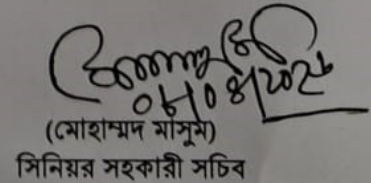 ০৮/০৪/২০২৫
(মোহাম্মদ মাসুম)
সিনিয়র সহকারী সচিব